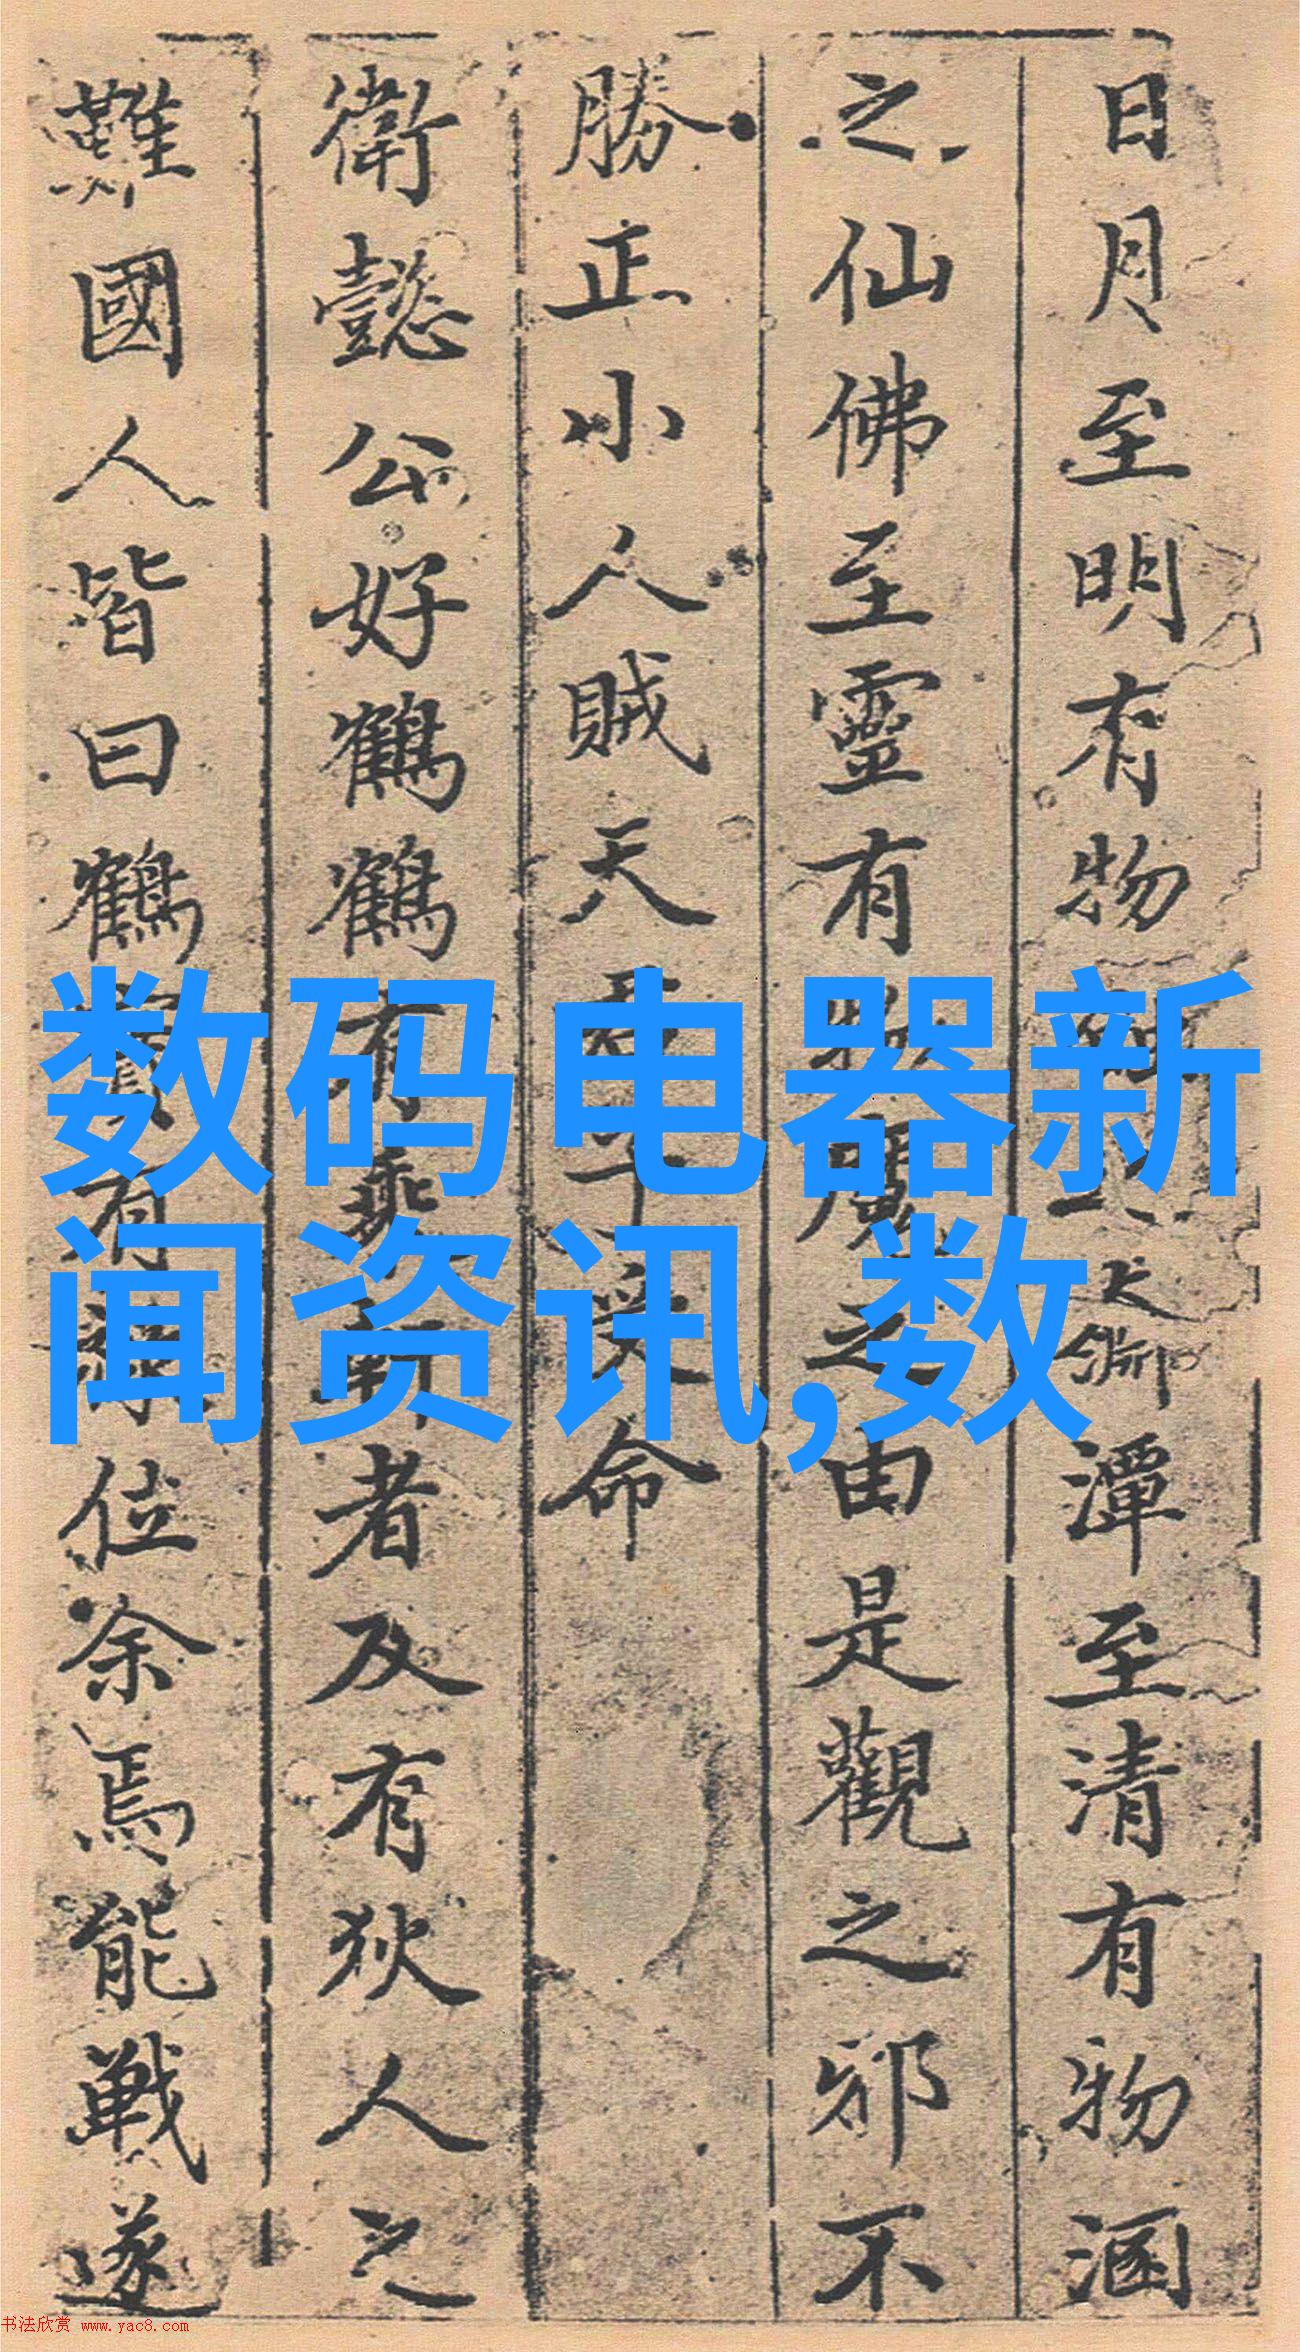 日月至明有物
大淵潭至清有物涵
之仙佛至靈有物魔之由是觀之邪不
勝正小人賊天君子受命
衛懿公好鶴鶴有乘軒者及有狄人之
難國人皆曰鶴實有祿位余焉能戰遂
数码电器新
闻资讯,数
书法欣赏 www.yac8.com